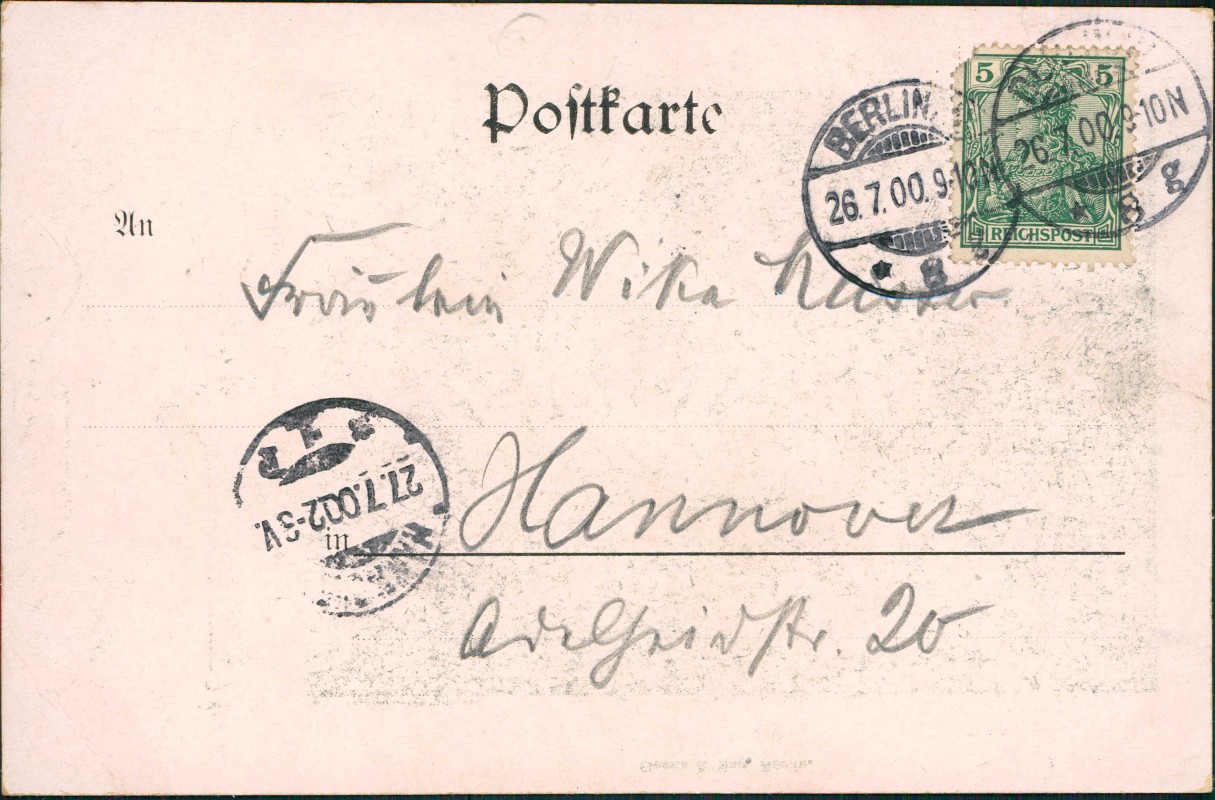 Postkarte
5 5
REICHSPOST
BERLIN
26.7.00.9-10N
* 8 g
26.7.00.9-10N
* 8 g
An
Fräulein Wika
27.7.00.2-3V.
Hannover
in
Adelheidstr. 20